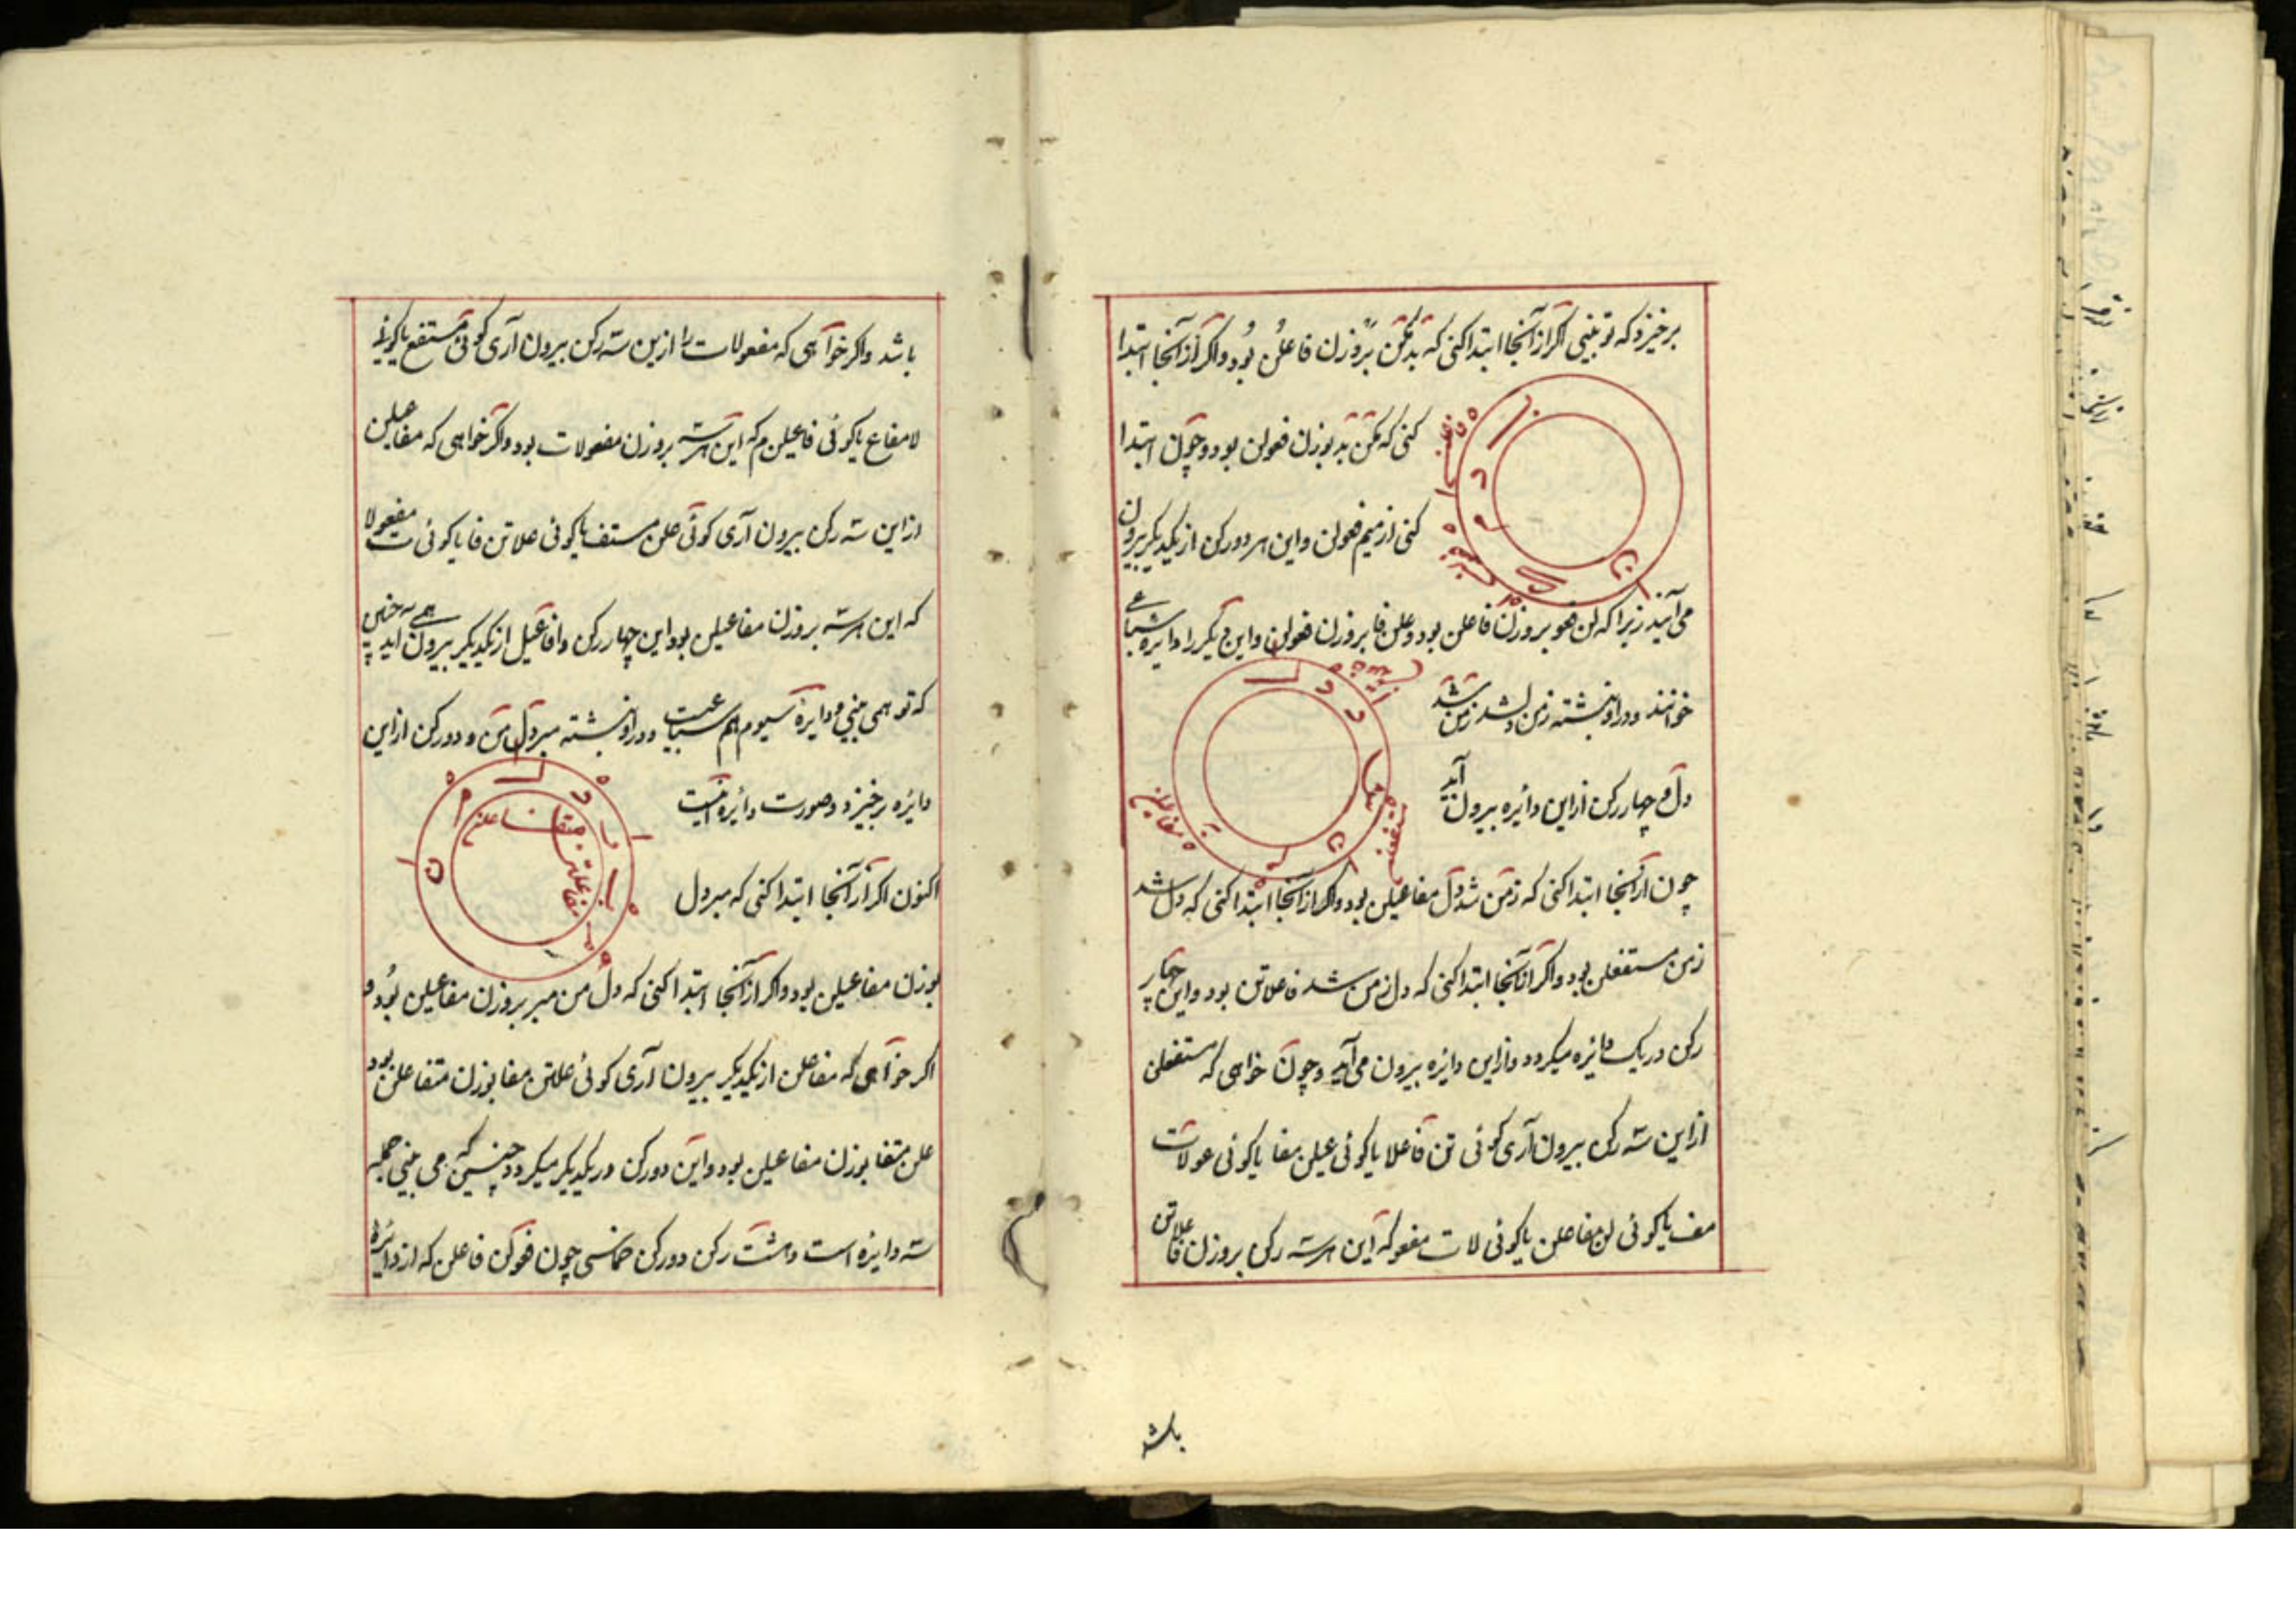 برخیزد که تو بینی اگر از آنجا ابتدا کنی که بد مکن بروزن فاعلن بود و اگر از آنجا ابتدا
کنی که مکن بد بوزن فعولن بود و چون ابتدا
کنی از میم فعولن و این هر دو رکن از یکدیگر بیرون
می آید زیرا که لن فعو بروزن فاعلن بود و علن فا بروزن فعولن و این دیگر را دایره سباعی
خوانند و در او نبشته زمن دلشد زمن شد
دل و چهار رکن از این دائره بیرون آید
چون از آنجا ابتدا کنی که زمن شد دل مفاعیلن بود و اگر از آنجا ابتدا کنی که دل شد
زمن مستفعلن بود و اگر از آنجا ابتدا کنی که دل زمن شد فاعلاتن بود و این چهار
رکن در یک دائره میگردد و از این دایره بیرون می آید و چون خواهی که مستفعلن
از این سه رکن بیرون آری گوئی تن فاعلا یا گوئی عیلن مفا یا گوئی عولات
مف یا گوئی لن مفاعلن یا گوئی لات مفعو که این هر سه رکن بروزن فاعلاتن
باشد
باشد و اگر خواهی که مفعولات را ازین سه رکن بیرون آری گوئی تن مستفع یا گوئی
لا مفاع یا گوئی فاعیلن م که این هر سه بروزن مفعولات بود و اگر خواهی که مفاعیلن
از این سه رکن بیرون آری گوئی علن مستف یا گوئی علاتن فا یا گوئی ت مفعولا
که این هر سه بروزن مفاعیلن بود این چهار رکن و افاعیل از یکدیگر بیرون آید همی چنین
که تو همی بینی و دایره سیوم هم سباعیت و در او نبشته مبر دل من و دو رکن از این
دائره برخیزد و صورت دائره اینست
اکنون اگر از آنجا ابتدا کنی که مبر دل
بوزن مفاعیلن بود و اگر از آنجا ابتدا کنی که دل من مبر بروزن مفاعیلن بود و
اگر خواهی که مفاعلن از یکدیگر بیرون آری گوئی علاتن مفا بوزن متفاعلن بود
علن متفا بوزن مفاعیلن بود و این دو رکن در یکدیگر میگردد چنین که می بینی جمله
سه دایره است و هشت رکن دو رکن خماسی چون فعولن فاعلن که از دائره